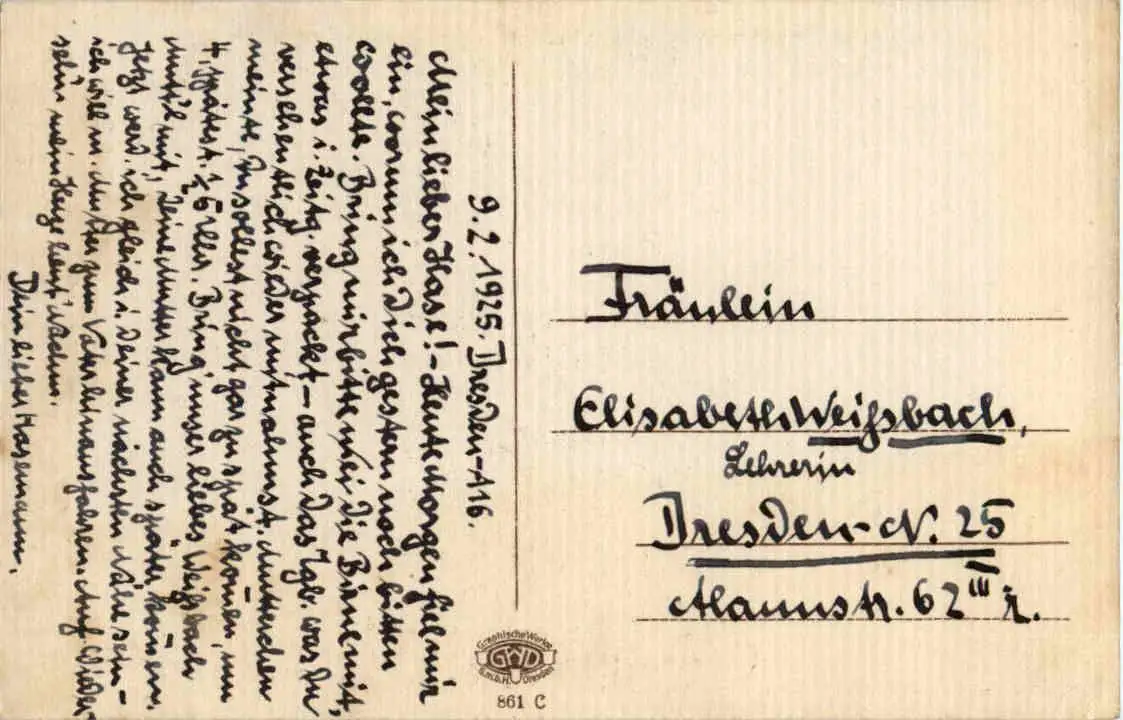 9. 2. 1925. Dresden-A16.
Mein lieber Hase! - Heute Morgen fiel mir
ein, worum ich Dich gestern noch bitten
wollte. Bring mir bitte die mit,
etwas i. Zeitg. verpackt - auch das Tgb. was Du
versehentlich wieder mitnahmst. Mutterchen
meinte, Du solltest nicht gar zu spät kom̄en, um
4, spätest. ½5 Uhr. Bring' unser liebes Weigsbach
Mutt'l mit, Deine Mutter kann auch später kom̄en.
Jetzt werd. ich gleich i. Deiner nächsten Nähe sein -
ich will m. Mutter zum Vater hinausfahren. Auf Wieder-
sehn mein
Dein lieber Hasemann.
Fräulein
Elisabeth Weigsbach,
Lehrerin
Dresden-N. 25
Alaunstr. 62 III r.
Graphische Werke
GWD
G.m.b.H. Dresden
861 C